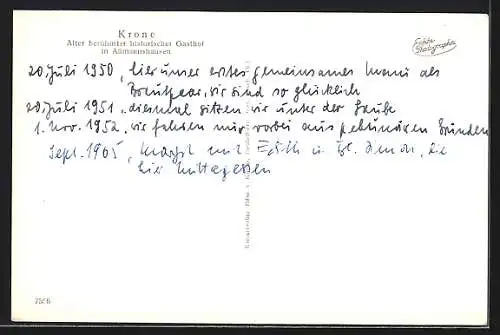 Krone
Alter berühmter historischer Gasthof
in Aßmannshausen
Echte
Photographie
20. Juli 1950, hier unser erstes gemeinsames Menu als
Brautpaar, wir sind so glücklich
20. Juli 1951, diesmal sitzen wir unter der Laube
1. Nov. 1952, wir fahren nur vorbei aus pekuniären Gründen
Sept. 1965, Margit mit Edith u.
hier Mittagessen
7556